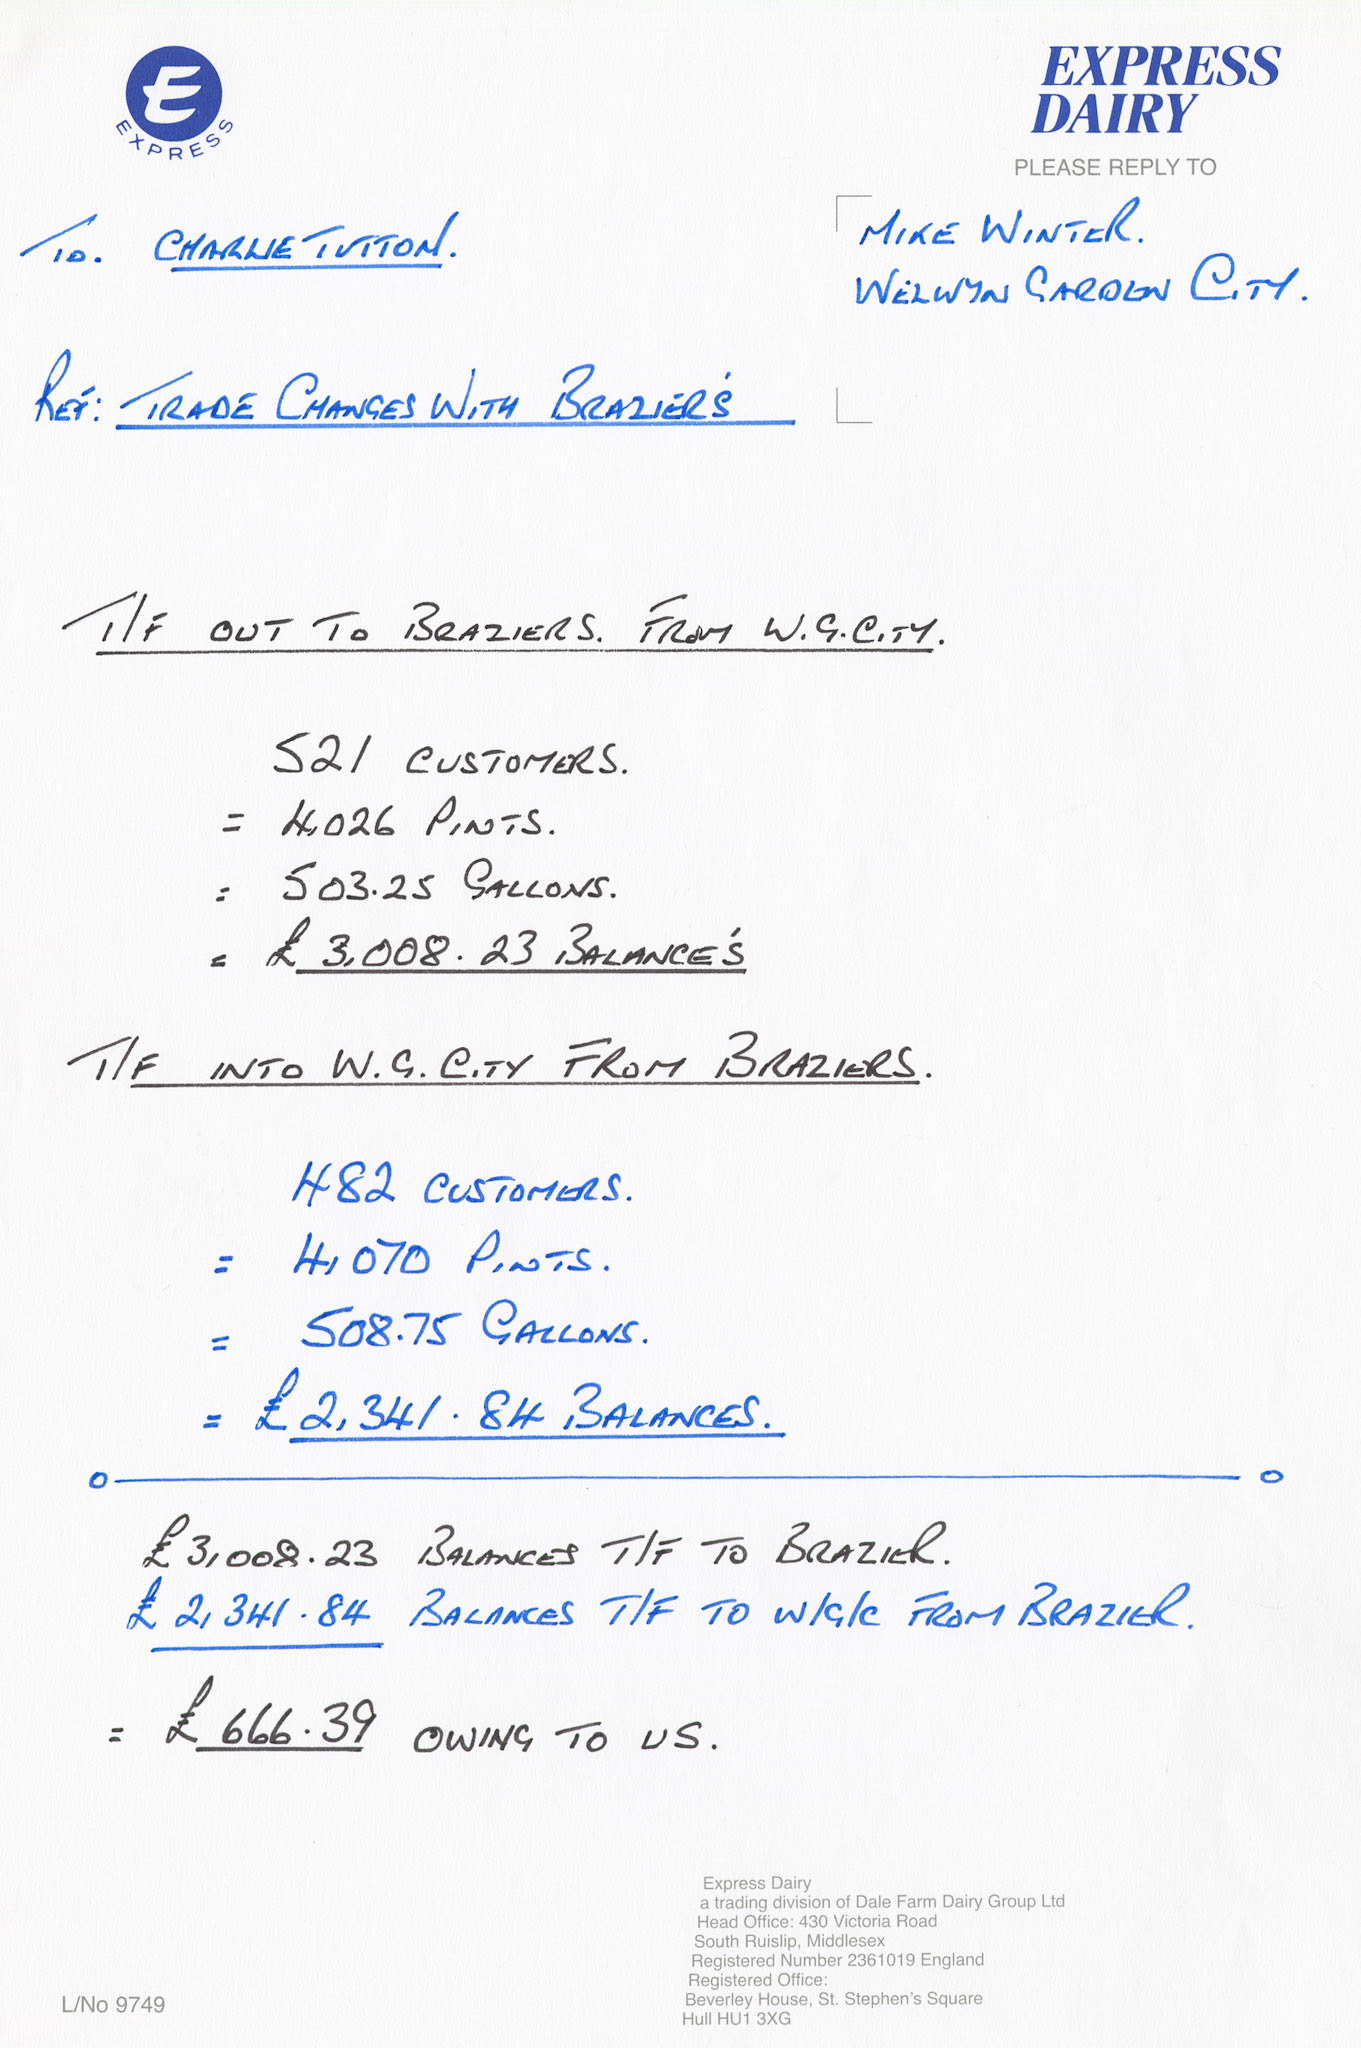 E
EXPRESS
EXPRESS
DAIRY
PLEASE REPLY TO
To. CHARLIE TUTTON.
MIKE WINTER.
WELWYN GARDEN CITY.
REF: TRADE CHANGES WITH BRAZIER'S
T/F OUT TO BRAZIERS. FROM W.G.CITY.
521 CUSTOMERS.
= 4,026 PINTS.
= 503.25 GALLONS.
= £3,008.23 BALANCE'S
T/F INTO W.G.CITY FROM BRAZIERS.
482 CUSTOMERS.
= 4,070 PINTS.
= 508.75 GALLONS.
= £2,341.84 BALANCES.
£3,008.23 BALANCES T/F TO BRAZIER.
£2,341.84 BALANCES T/F TO W/G/C FROM BRAZIER.
= £666.39 OWING TO US.
Express Dairy
a trading division of Dale Farm Dairy Group Ltd
Head Office: 430 Victoria Road
South Ruislip, Middlesex
Registered Number 2361019 England
Registered Office:
Beverley House, St. Stephen's Square
Hull HU1 3XG
L/No 9749